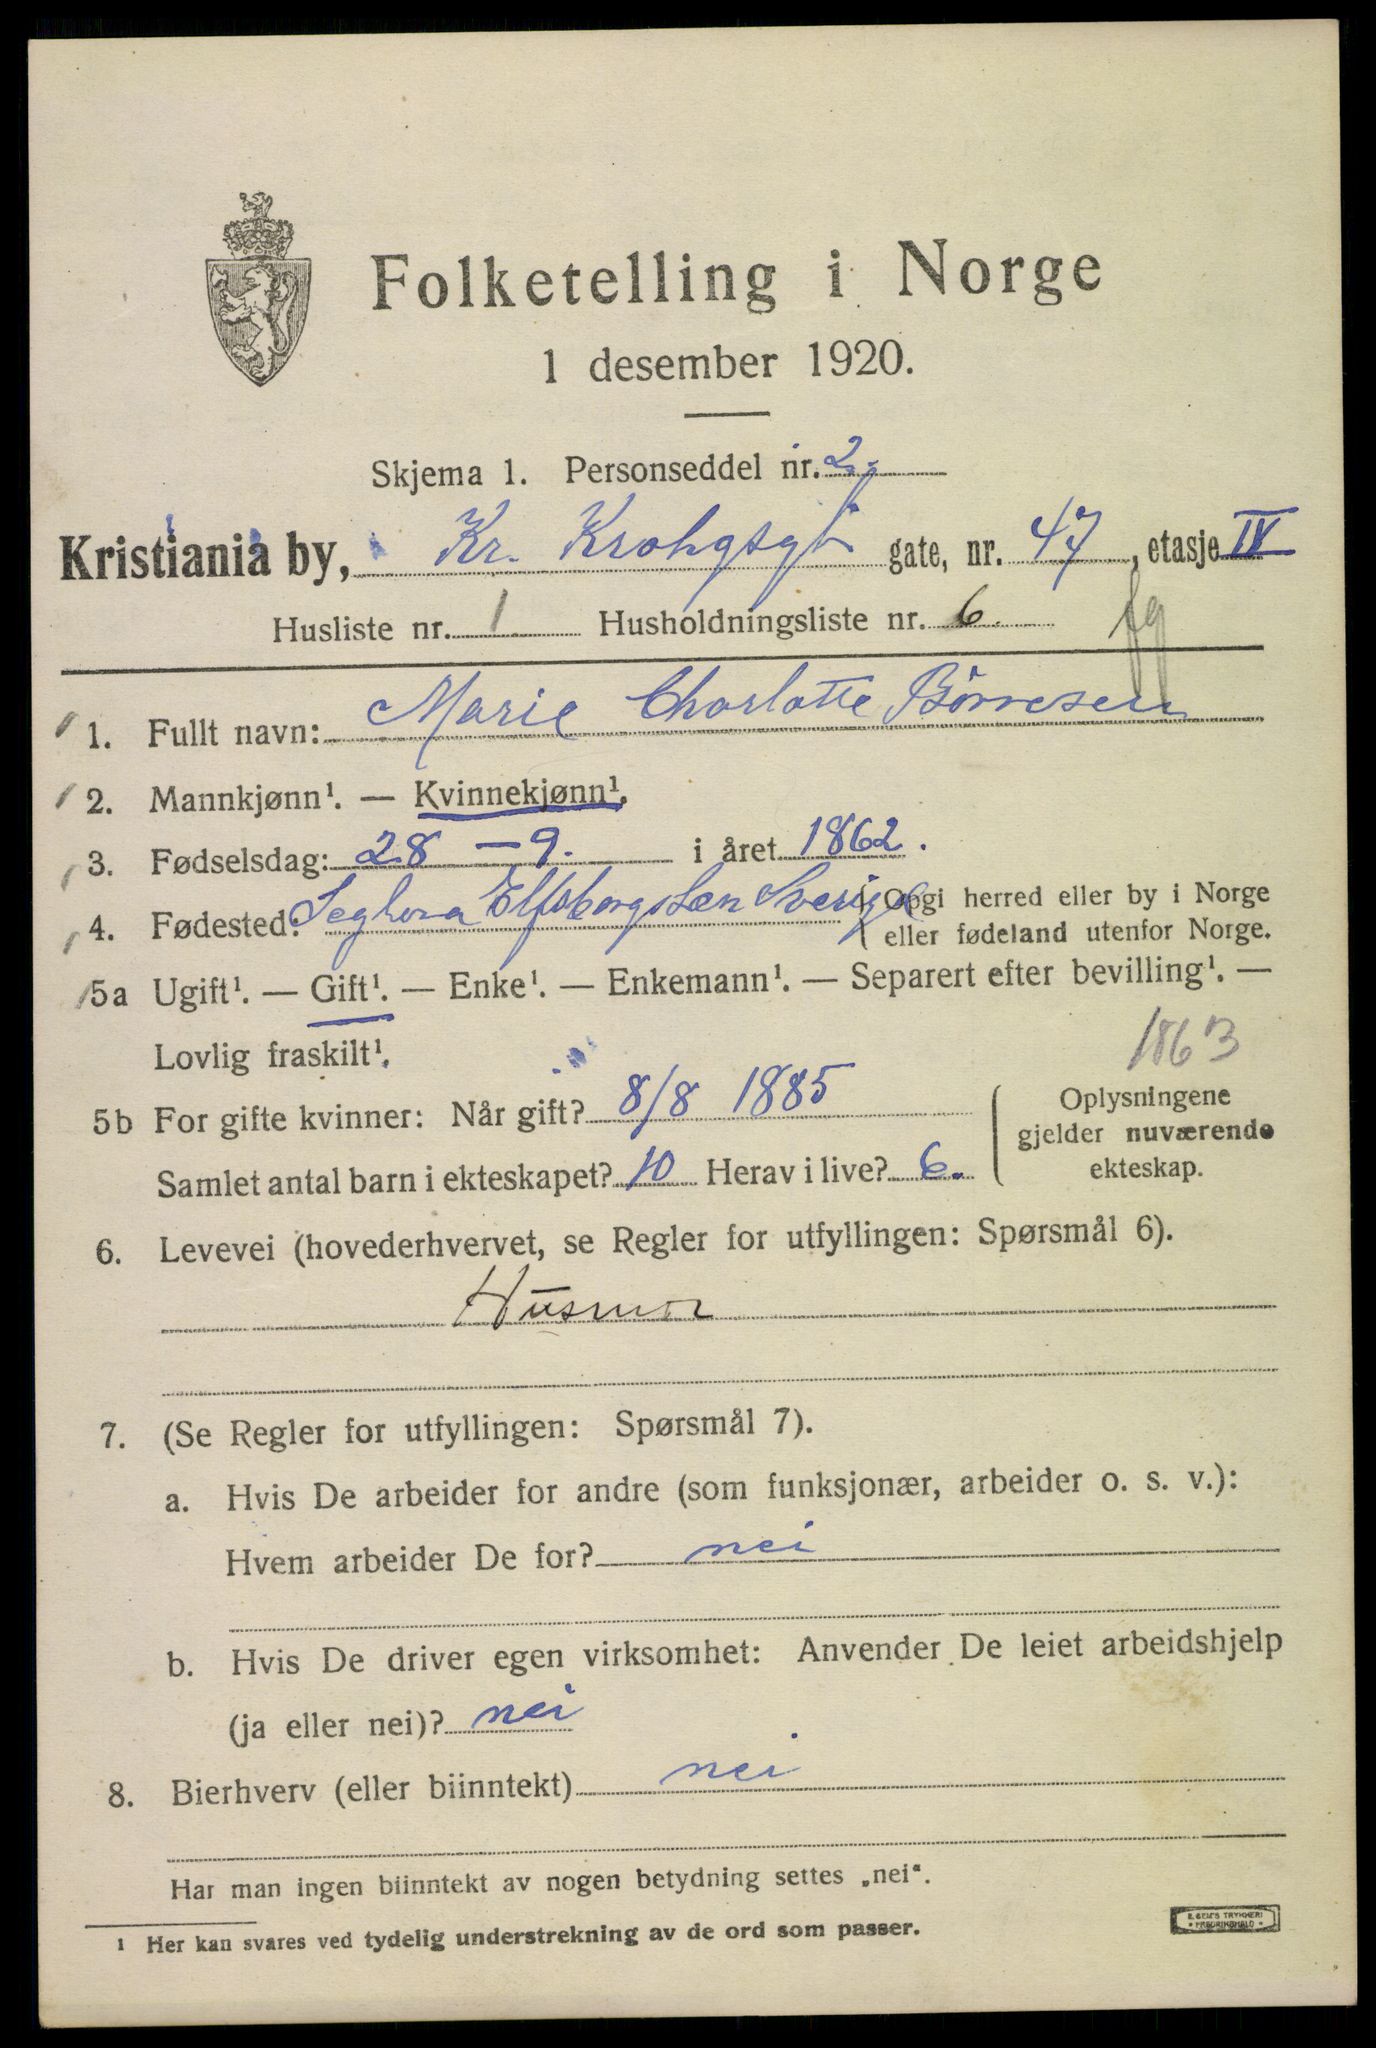 Folketelling i Norge
1 desember 1920.
Skjema 1. Personseddel nr. 2.
Kristiania by, Kr. Krohgsgt gate, nr. 47, etasje IV
Husliste nr. 1 Husholdningsliste nr. 6.
1. Fullt navn: Marie Charlotte Börresen
2. Mannkjønn¹. — Kvinnekjønn¹.
3. Fødselsdag: 28 – 9. i året 1862.
4. Fødested: Seglora Elfsborgs Læn Sverige { Opgi herred eller by i Norge
eller fødeland utenfor Norge.
5a Ugift¹. — Gift¹. — Enke¹. — Enkemann¹. — Separert efter bevilling¹. —
Lovlig fraskilt¹.
1863
5b For gifte kvinner: Når gift? 8/8 1885
Samlet antal barn i ekteskapet? 10 Herav i live? 6.
Oplysningene
gjelder nuværende
ekteskap.
6. Levevei (hovederhvervet, se Regler for utfyllingen: Spørsmål 6).
Husmor
7. (Se Regler for utfyllingen: Spørsmål 7).
a. Hvis De arbeider for andre (som funksjonær, arbeider o. s. v.):
Hvem arbeider De for? nei
b. Hvis De driver egen virksomhet: Anvender De leiet arbeidshjelp
(ja eller nei)? nei
8. Bierhverv (eller biinntekt) nei
Har man ingen biinntekt av nogen betydning settes „nei“.
¹ Her kan svares ved tydelig understrekning av de ord som passer.
E. SEM'S TRYKKERI
* FREDRIKSHALD *